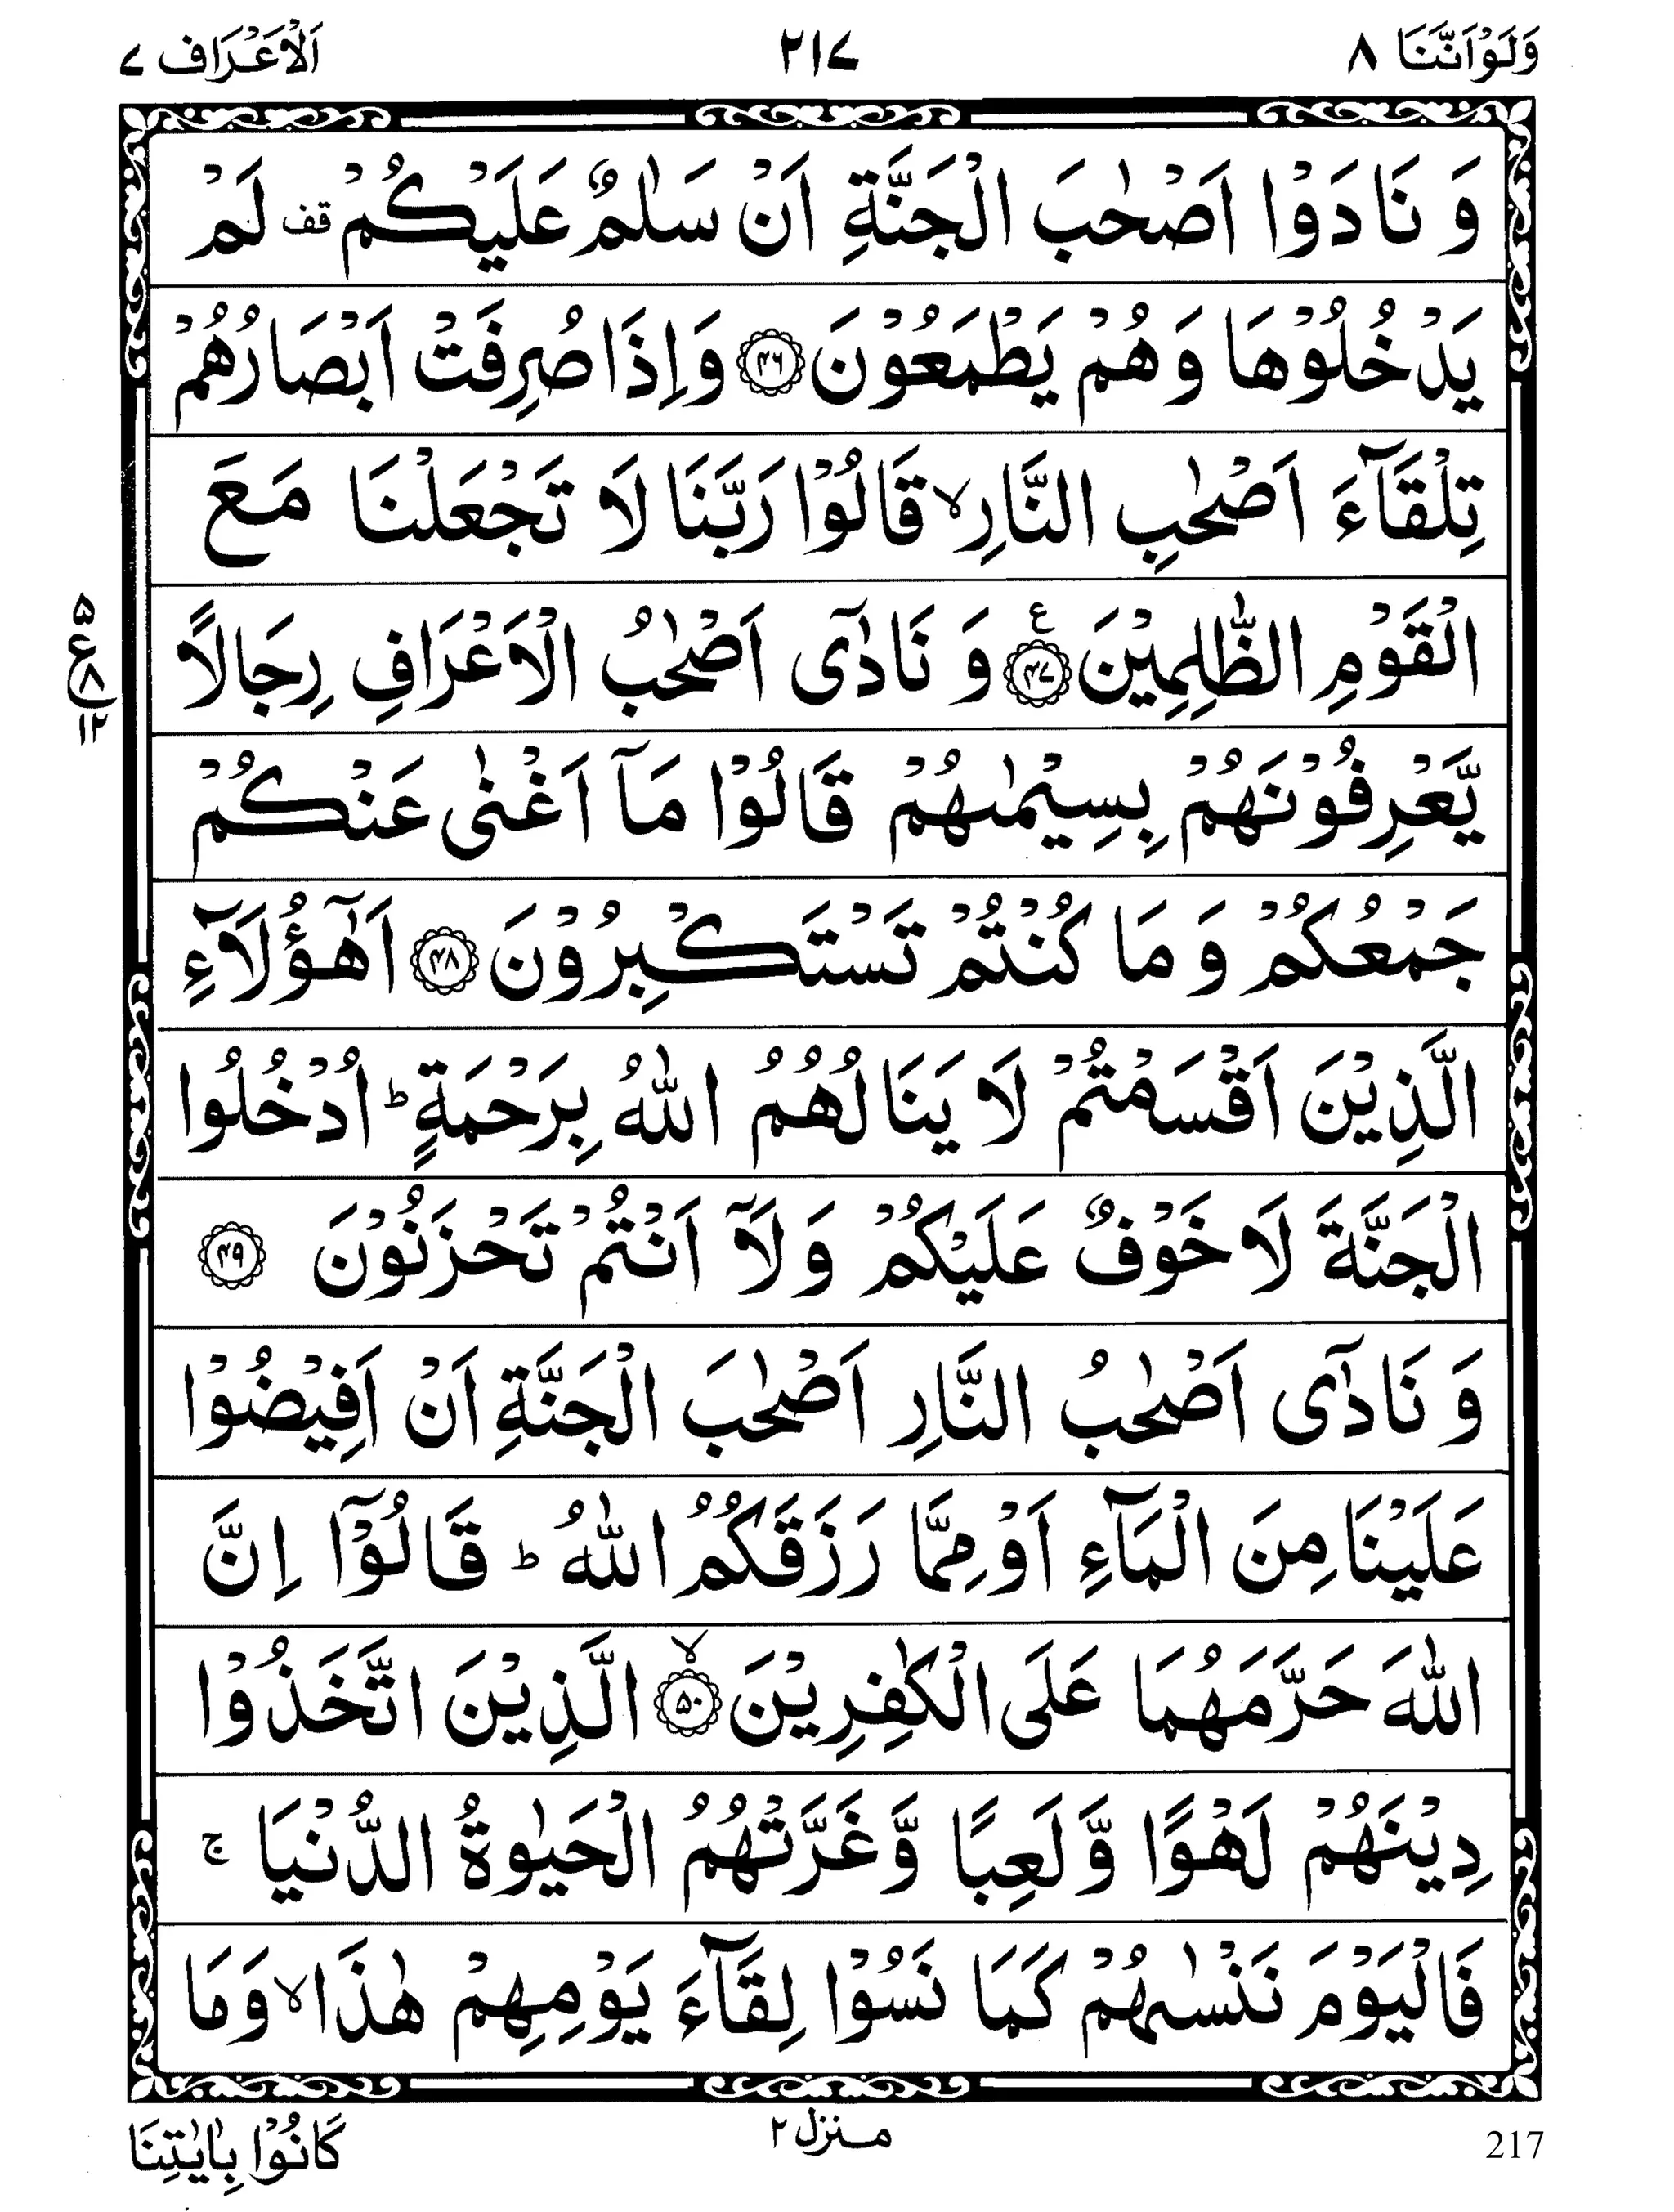 وَلَوْاَنَّنَا ٨ ٢١٧ اَلْاَعْرَاف ٧
وَ نَادَوْا اَصْحٰبَ الْجَنَّةِ اَنْ سَلٰمٌ عَلَيْكُمْ قف لَمْ
يَدْخُلُوْهَا وَهُمْ يَطْمَعُوْنَ ۝٤٦ وَاِذَا صُرِفَتْ اَبْصَارُهُمْ
تِلْقَآءَ اَصْحٰبِ النَّارِ ۙ قَالُوْا رَبَّنَا لَا تَجْعَلْنَا مَعَ
الْقَوْمِ الظّٰلِمِيْنَ ۝٤٧ ع وَ نَادٰٓى اَصْحٰبُ الْاَعْرَافِ رِجَالًا
٥ ع ٨ ١٢
يَّعْرِفُوْنَهُمْ بِسِيْمٰىهُمْ قَالُوْا مَآ اَغْنٰى عَنْكُمْ
جَمْعُكُمْ وَ مَا كُنْتُمْ تَسْتَكْبِرُوْنَ ۝٤٨ اَهٰٓؤُلَآءِ
الَّذِيْنَ اَقْسَمْتُمْ لَا يَنَالُهُمُ اللّٰهُ بِرَحْمَةٍ ؕ اُدْخُلُوا
الْجَنَّةَ لَا خَوْفٌ عَلَيْكُمْ وَ لَآ اَنْتُمْ تَحْزَنُوْنَ ۝٤٩
وَ نَادٰٓى اَصْحٰبُ النَّارِ اَصْحٰبَ الْجَنَّةِ اَنْ اَفِيْضُوْا
عَلَيْنَا مِنَ الْمَآءِ اَوْ مِمَّا رَزَقَكُمُ اللّٰهُ ؕ قَالُوْٓا اِنَّ
اللّٰهَ حَرَّمَهُمَا عَلَى الْكٰفِرِيْنَ ۝٥٠ ۙ الَّذِيْنَ اتَّخَذُوْا
دِيْنَهُمْ لَهْوًا وَّ لَعِبًا وَّ غَرَّتْهُمُ الْحَيٰوةُ الدُّنْيَا ۚ
فَالْيَوْمَ نَنْسٰىهُمْ كَمَا نَسُوْا لِقَآءَ يَوْمِهِمْ هٰذَا ۙ وَمَا
217 مـنزل ٢ كَانُوْا بِاٰيٰتِنَا